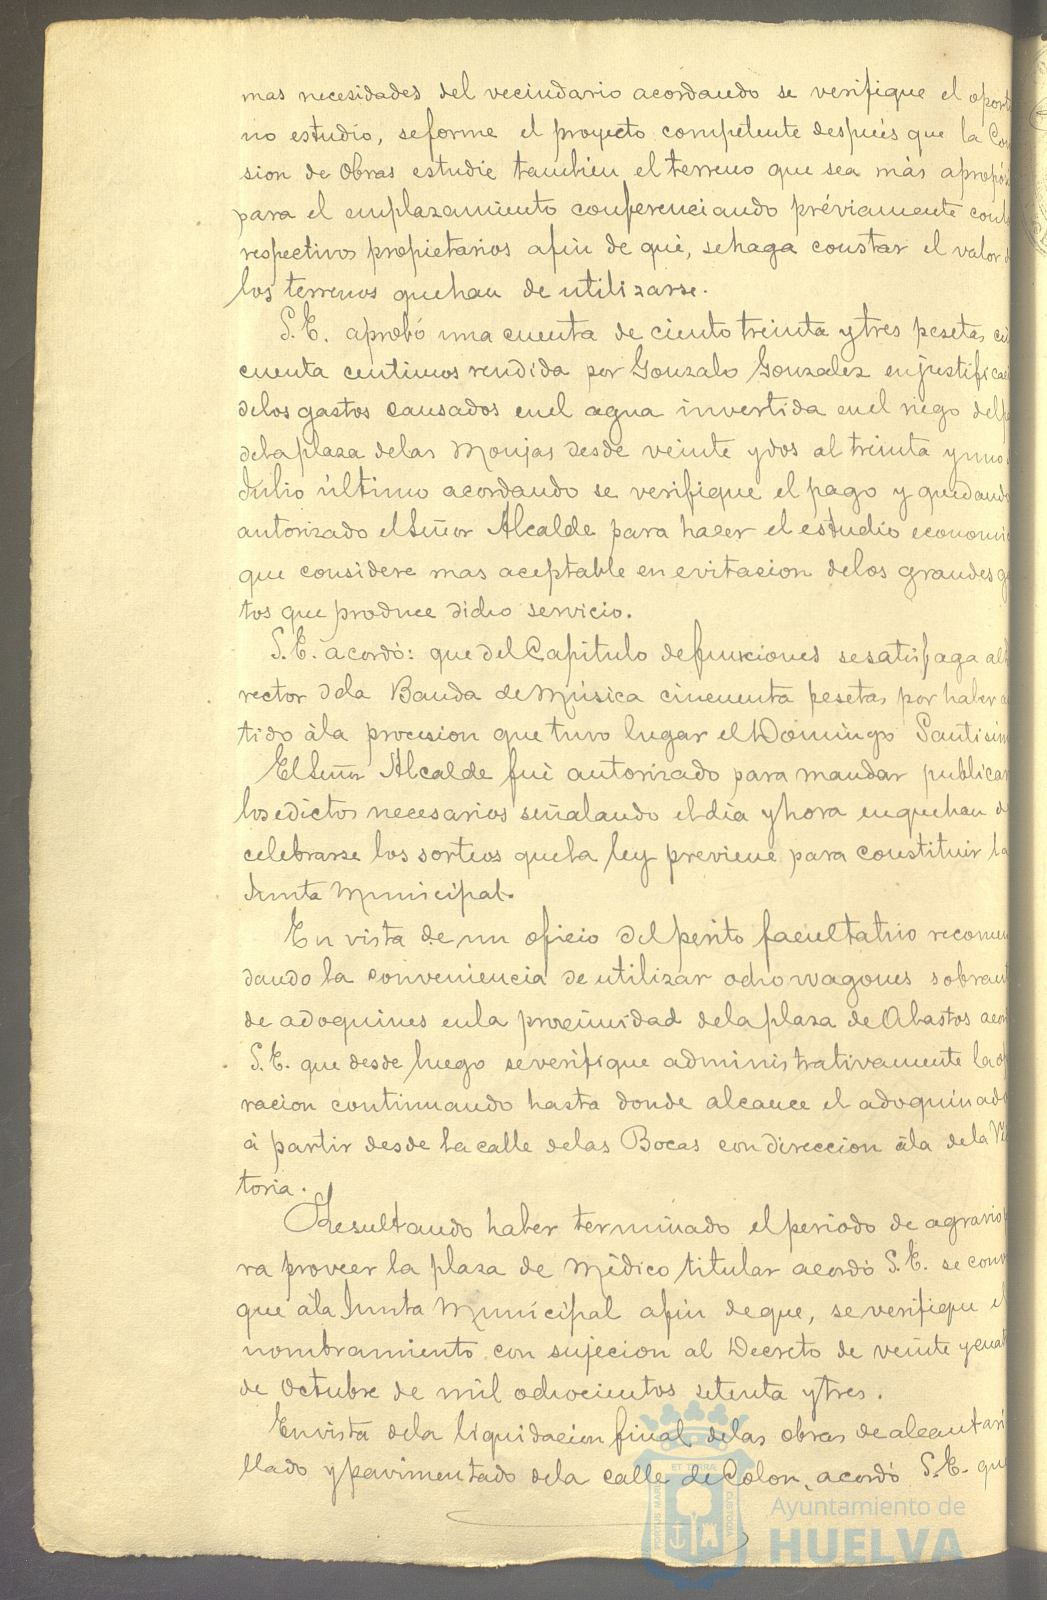 mas necesidades del vecindario acordando se verifique el oport
no estudio, se forme el proyecto competente despues que la Com
sion de Obras estudie tambien el terreno que sea màs apropós
para el emplazamiento conferenciando préviamente con lo
respectivos propietarios afin de que, se haga constar el valor d
los terrenos que han de utilizarse.
S. E. aprobó una cuenta de ciento treinta y tres pesetas cin
cuenta centimos rendida por Gonzalo Gonzalez en justificaci
de los gastos causados en el agua invertida en el riego del
de la plaza de las Monjas desde veinte y dos al treinta y uno d
Julio último acordando se verifique el pago y quedando
autorizado el Señor Alcalde para hacer el estudio economic
que considere mas aceptable en evitacion de los grandes ga
tos que produce dicho servicio.
S. E. acordó: que del Capitulo de funciones se satisfaga al
rector de la Banda de Música cincuenta pesetas por haber a
tido à la procesion que tuvo lugar el Domingo Santisim
El Señor Alcalde fué autorizado para mandar publicar
los edictos necesarios señalando el dia y hora en que han d
celebrarse los sorteos que la ley previene para constituir la
Junta Municipal.
En vista de un oficio del perito facultativo recomen
dando la conveniencia de utilizar ocho wagones sobrant
de adoquines en la proximidad de la plaza de Abastos acor
S. E. que desde luego se verifique administrativamente la op
racion continuando hasta donde alcance el adoquinado
à partir desde la calle de las Bocas con direccion à la de la Vic
toria.
Resultando haber terminado el periodo de agravios
ra proveer la plaza de Médico titular acordó S. E. se convo
que à la Junta Municipal afin de que, se verifique el
nombramiento con sujecion al Decreto de veinte y cuat
de Octubre de mil ochocientos setenta y tres.
En vista de la liquidacion final de las obras de alcantari
llado y pavimentado de la calle de Colon, acordó S. E. que
PORTUS MARIS
ET TERRÆ
CUSTODIA
Ayuntamiento de
HUELVA